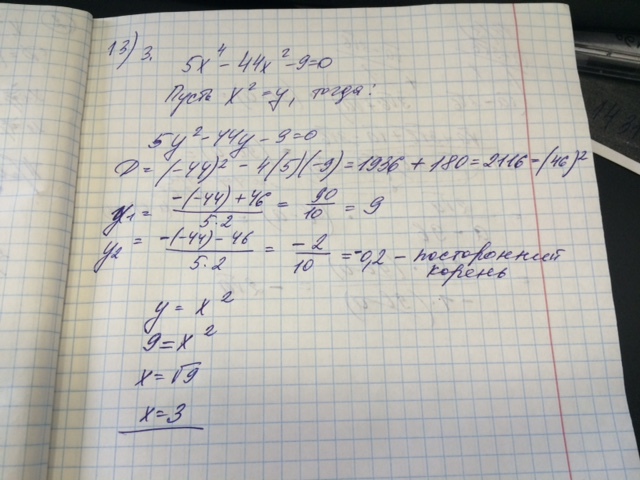 13) 3.
5x⁴ - 44x² - 9 = 0
Пусть x² = y, тогда:
5y² - 44y - 9 = 0
D = (-44)² - 4(5)(-9) = 1936 + 180 = 2116 = (46)²
y₁ = -(-44) + 46 / 5·2 = 90/10 = 9
y₂ = -(-44) - 46 / 5·2 = -2/10 = -0,2 - посторонний
корень
y = x²
9 = x²
x = √9
x = 3